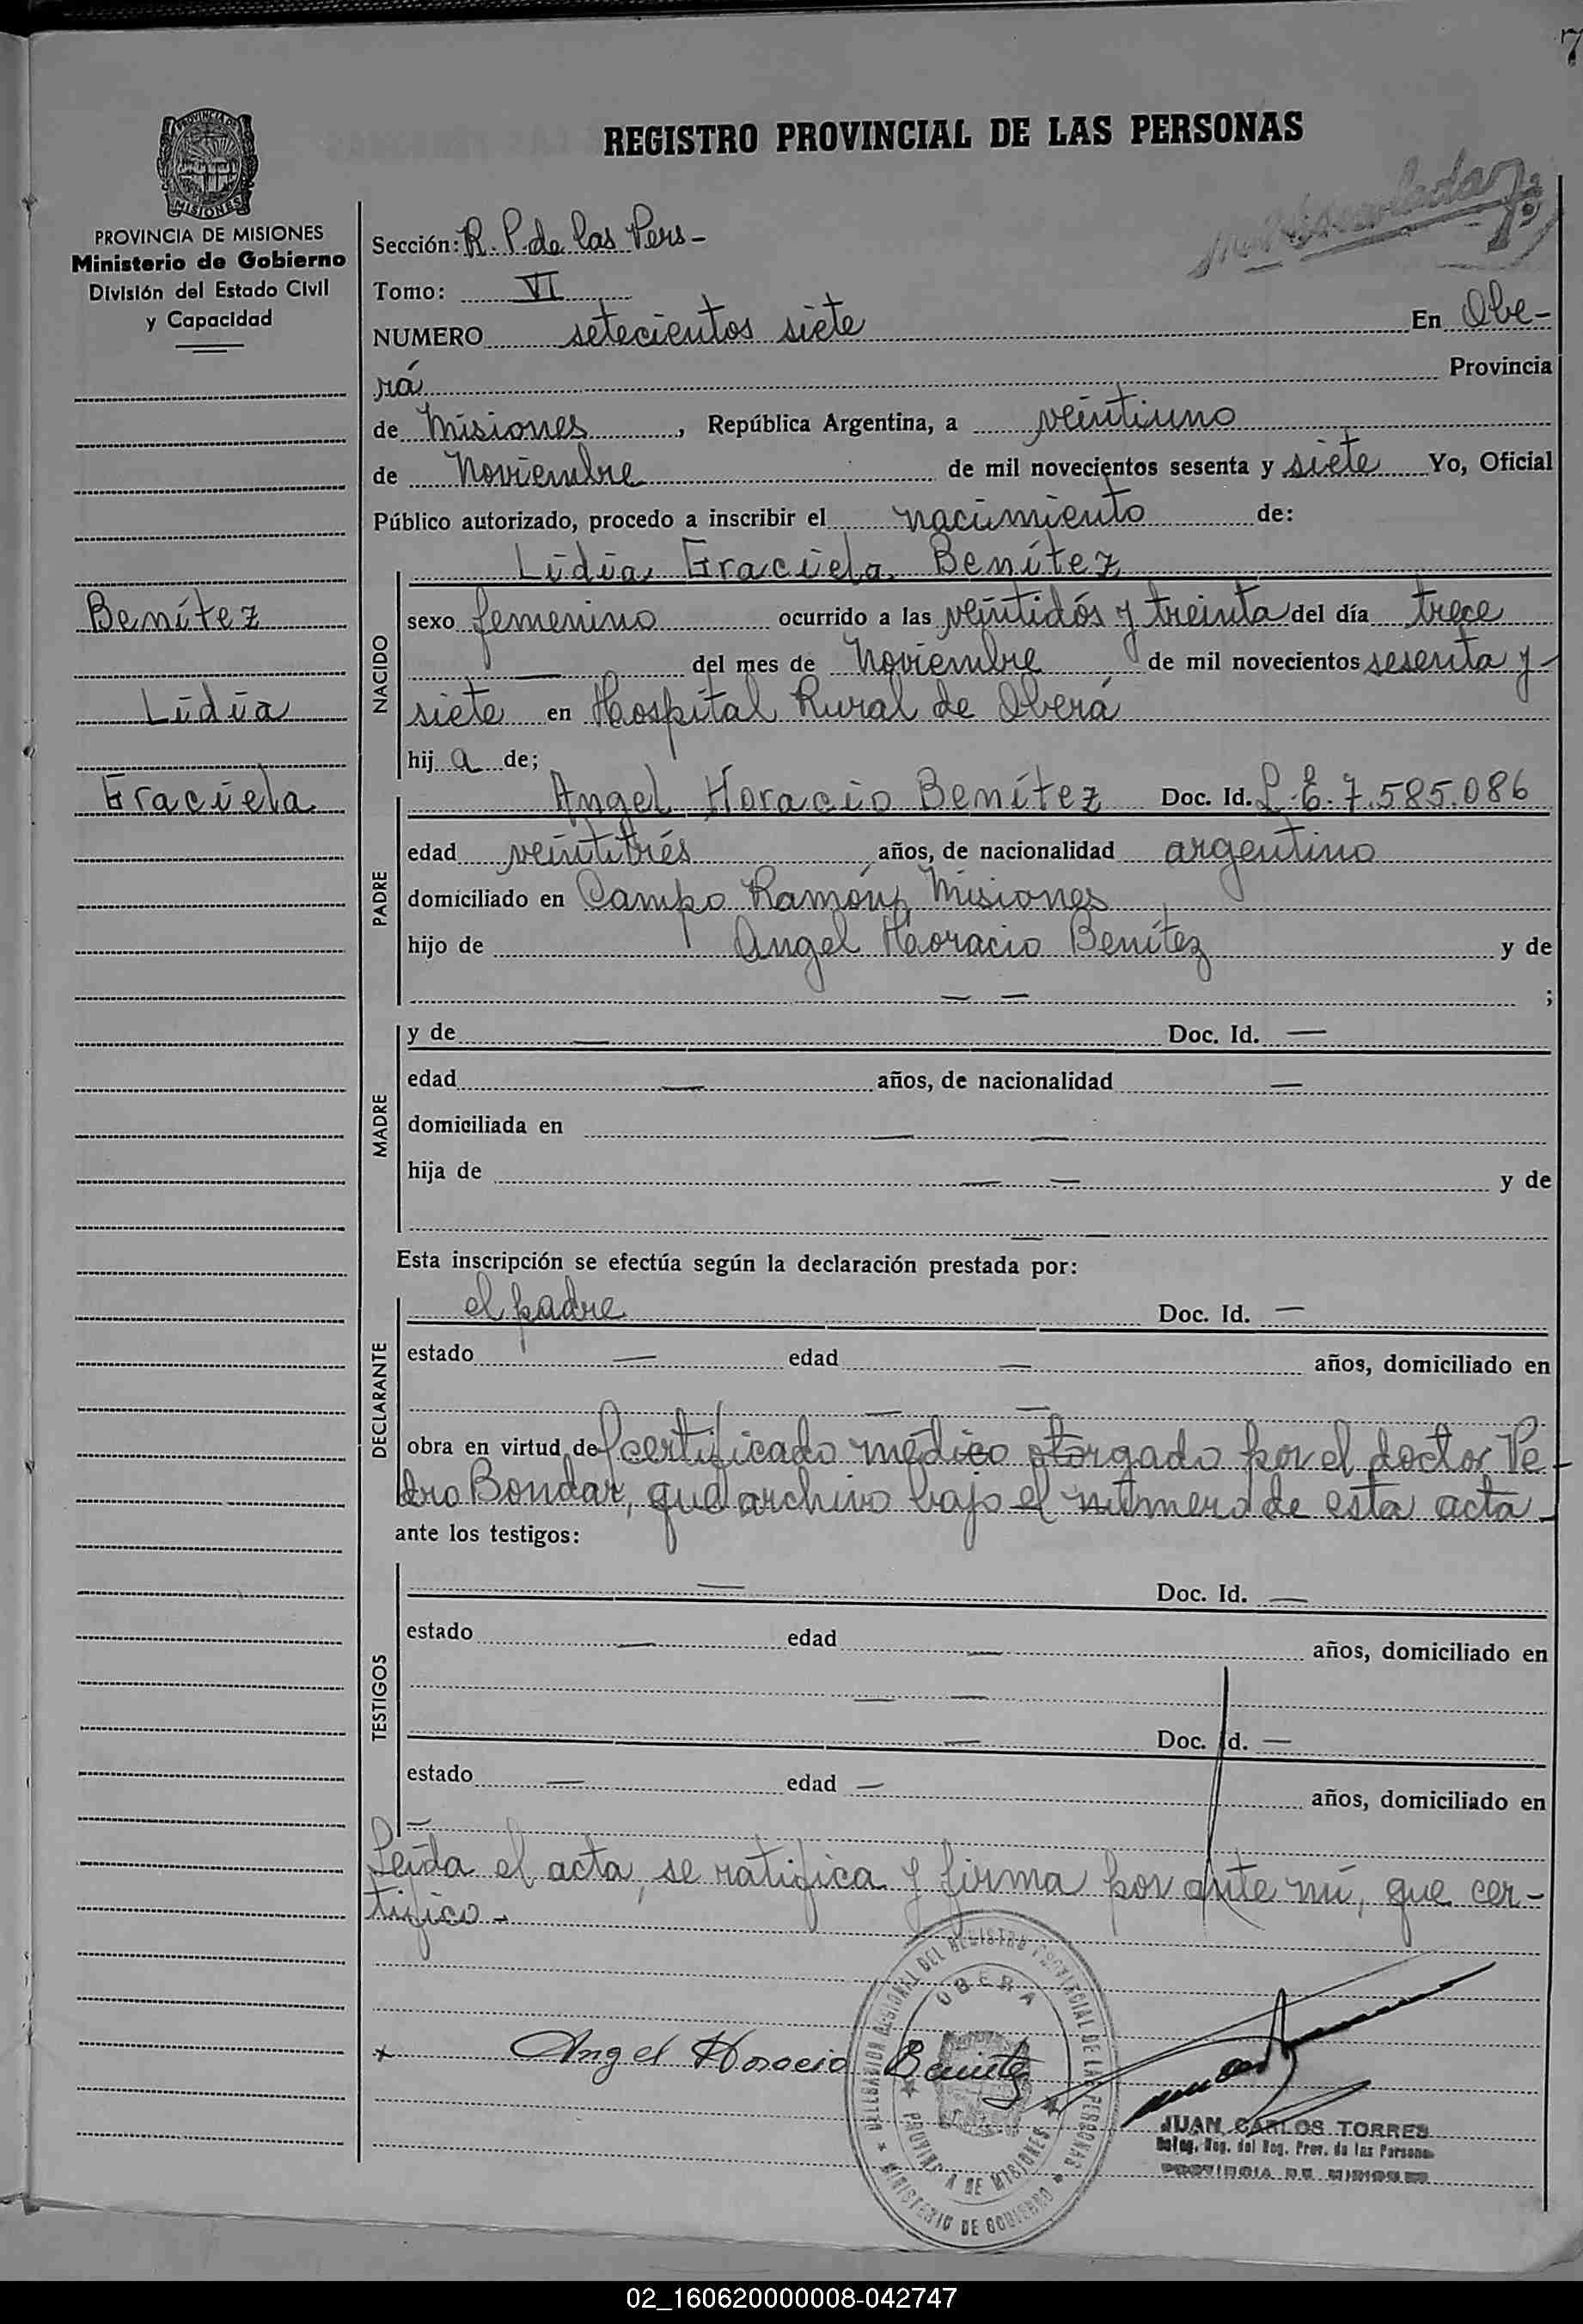 7
REGISTRO PROVINCIAL DE LAS PERSONAS
PROVINCIA DE
MISIONES
PROVINCIA DE MISIONES
Ministerio de Gobierno
División del Estado Civil
y Capacidad
Benítez
Lidia
Graciela
Sección: R. P. de las Pers-
Tomo: VI
NUMERO setecientos siete En Obe-
rá Provincia
de Misiones, República Argentina, a veintiuno
de Noviembre de mil novecientos sesenta y siete Yo, Oficial
Público autorizado, procedo a inscribir el nacimiento de:
NACIDO
Lidia Graciela Benítez
sexo femenino ocurrido a las veintidós y treinta del día trece
— del mes de Noviembre de mil novecientos sesenta y-
siete en Hospital Rural de Oberá
hij a de;
PADRE
Angel Horacio Benítez Doc. Id. L.E. 7.585.086
edad veintitrés años, de nacionalidad argentino
domiciliado en Campo Ramón, Misiones
hijo de Angel Horacio Benítez y de
— — ;
MADRE
y de — Doc. Id. —
edad — años, de nacionalidad —
domiciliada en — —
hija de — — y de
— —
Esta inscripción se efectúa según la declaración prestada por:
DECLARANTE
el padre Doc. Id. —
estado — edad — años, domiciliado en
— —
obra en virtud de certificado médico otorgado por el doctor Pe-
dro Bondar, que archivo bajo el número de esta acta-
ante los testigos:
TESTIGOS
— Doc. Id. —
estado — edad — años, domiciliado en
— —
— Doc. Id. —
estado — edad — años, domiciliado en
—
Leída el acta, se ratifica y firma por ante mí, que cer-
tifico-
x Angel Horacio Benitez
DELEGACION REGIONAL DEL REGISTRO PROVINCIAL DE LAS PERSONAS
OBERA
PROVINCIA DE MISIONES
MINISTERIO DE GOBIERNO
JUAN CARLOS TORRES
Deleg. Reg. del Reg. Prov. de las Personas
PROVINCIA DE MISIONES
02_160620000008-042747